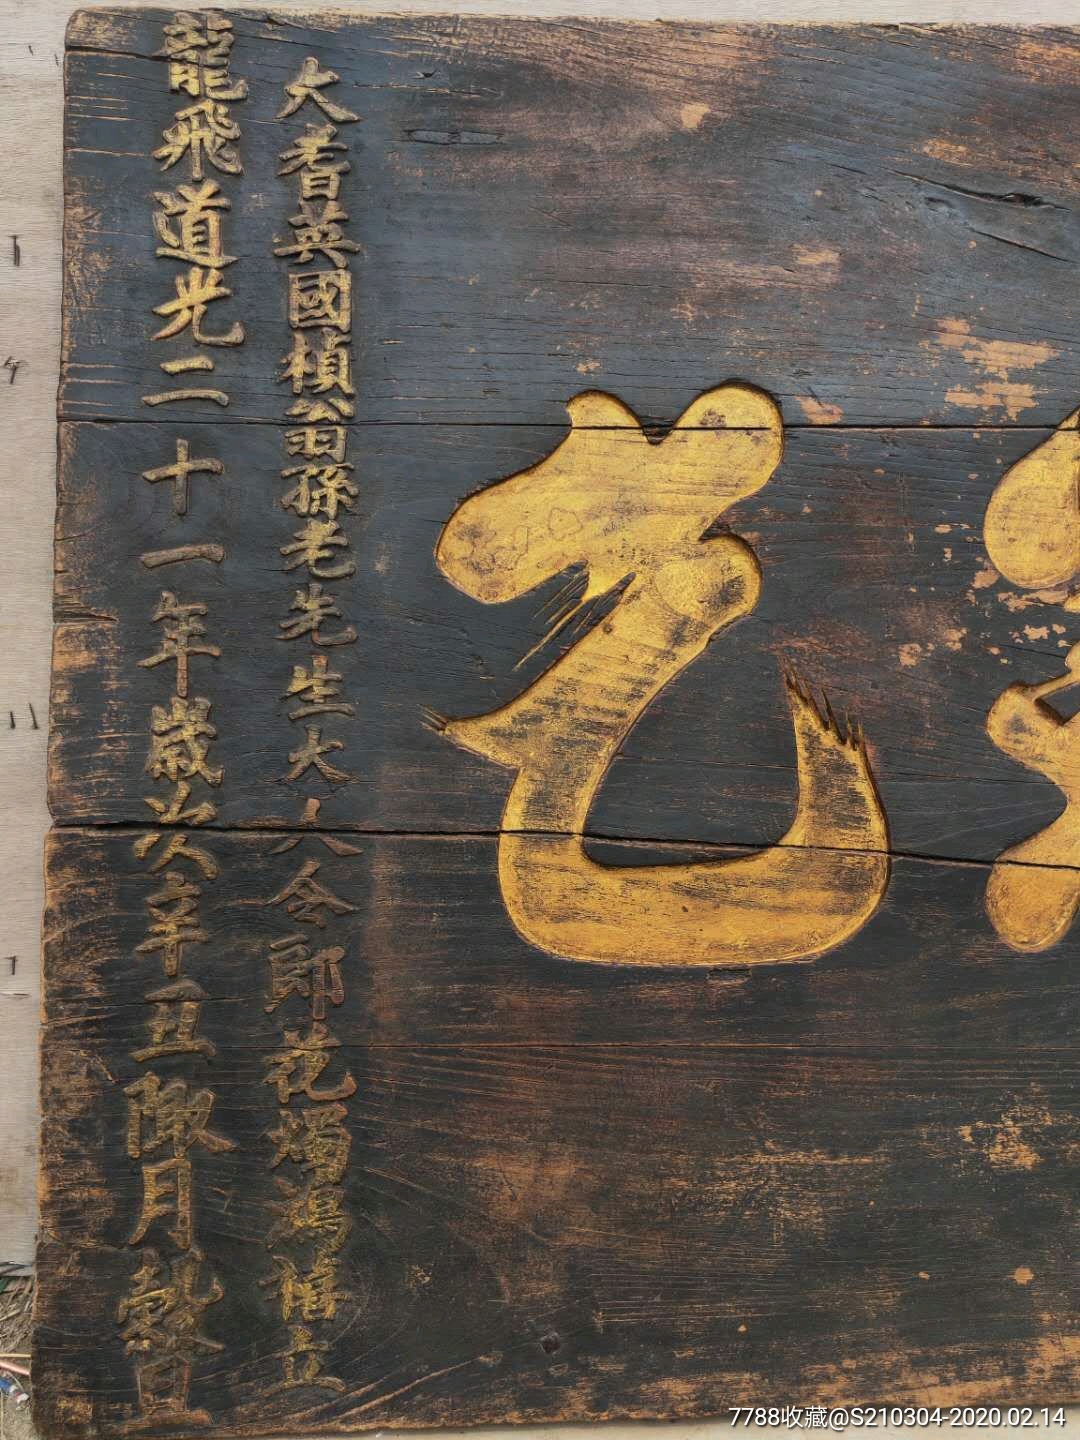 大耆英國楨翁孫老先生大人令郎花燭鴻禧立
龍飛道光二十一年歲次辛丑陬月穀旦
7788收藏@S210304-2020.02.14